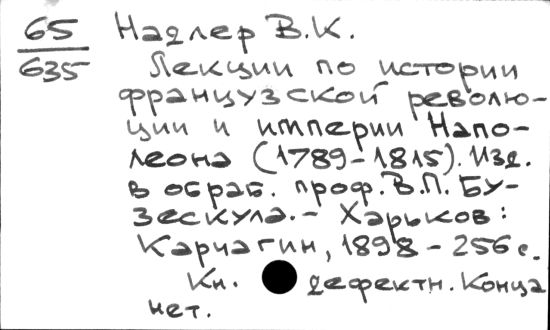 65 Надлер В.К.
635 Лекции по истории
французской револю-
ции и империи Напо-
леона (1789-1815). Изд.
в обраб. проф. В.П. Бу-
зескула. - Харьков:
Карчагин, 1898 - 256 с.
Кн. дефектн. Конца
нет.